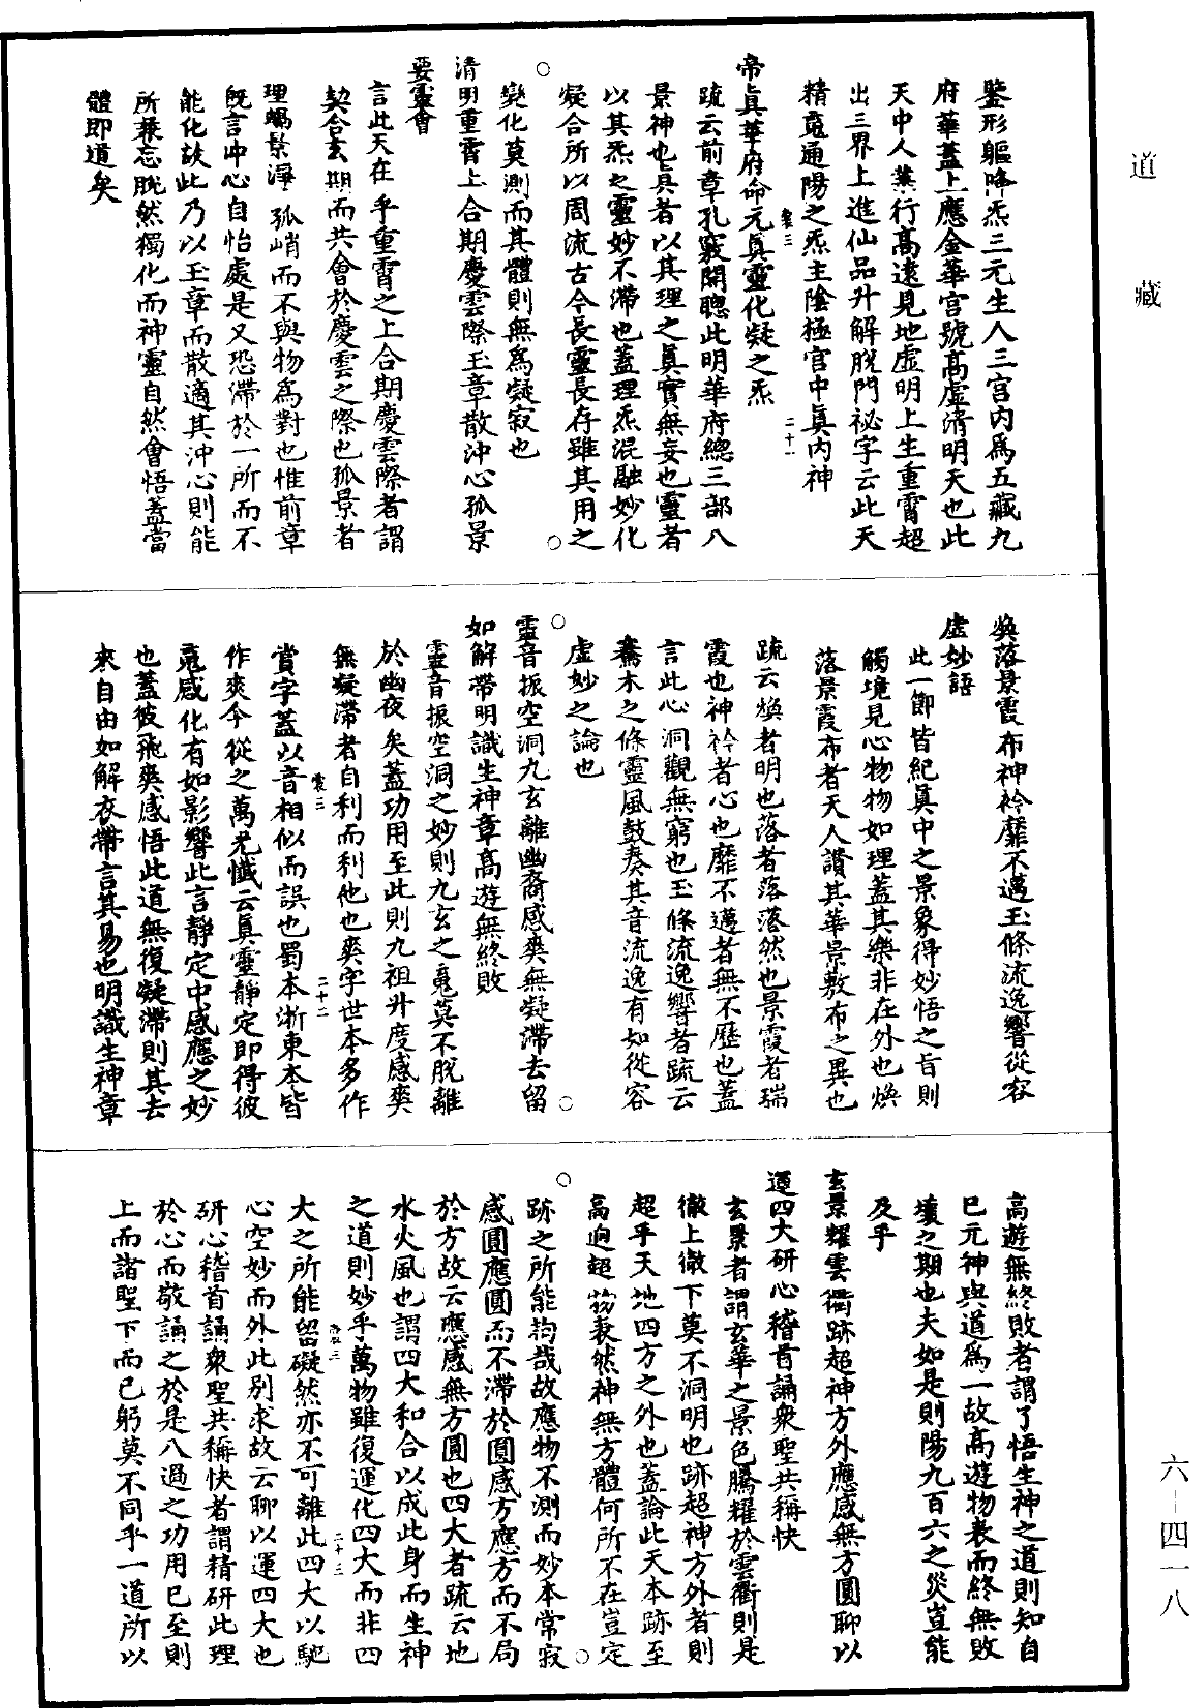 道藏
鑒形軀降炁三元生人三宮内為五藏九
府華蓋上應金華宮號高虛清明天也此
天中人業行高遠見地虛明上生重霄超
出三界上進仙品升解脫門祕字云此天
精竟通陽之炁主陰極宮中眞内神
二十一
帝眞華府命元眞靈化凝之炁
䟽云前章孔竅開聰此明華府總三部八
景神也眞者以其理之眞實無妄也靈者
以其炁之靈妙不滯也蓋理炁混融妙化
凝合所以周流古今長靈長存雖其用之
變化莫測而其體則無為凝寂也
清明重霄上合期慶雲際玉章散沖心孤景
要靈會
言此天在乎重霄之上合期慶雲際者謂
契合玄期而共會於慶雲之際也孤景者
理蝸景淨孤峭而不與物為對也惟前章
旣言冲心自怡處是又恐滯於一所而不
能化故此乃以玉章而散適其沖心則能
所兼忘脫然獨化而神靈自然會悟蓋當
體即道矣
煥落景霞布神衿靡不邁玉條流逸響從容
虛妙語
此一節皆紀眞中之景象得妙悟之旨則
觸境見心物物如理蓋其樂非在外也煥
落景霞布者天人讚其華景敷布之異也
䟽云煥者明也落者落落然也景霞者瑞
霞也神衿者心也靡不邁者無不歷也蓋
言此心洞觀無窮也玉條流逸響者䟽云
騫木之條靈風鼓奏其音流逸有如從容
虛妙之論也
靈音振空洞九玄離幽裔感爽無凝滯去留
如解帶明識生神章高遊無終敗
靈音振空洞之妙則九玄之竟莫不脫離
於幽夜矣蓋功用至此則九祖升度感爽
無凝滯者自利而利他也爽字世本多作
二十二
賞字蓋以音相似而誤也蜀本淅東本皆
作爽今從之萬先懺云眞靈靜定即得彼
竟感化有如影響此言靜定中感應之妙
也蓋彼飛爽感悟此道無復凝滯則其去
來自由如解衣帶言其易也明識生神章
高遊無終敗者謂了悟生神之道則知自
巳元神與道為一故高遊物表而終無敗
壞之期也夫如是則陽九百六之災豈能
及乎
玄景耀雲衢跡超神方外應感無方圓聊以
運四大研心稽首誦衆聖共稱快
玄景者謂玄華之景色騰耀於雲衢則是
徹上徹下莫不洞明也跡超神方外者則
超乎天地四方之外也蓋論此天本跡至
高逈超物表然神無方體何所不在豈定
跡之所能拘哉故應物不測而妙本常寂
感圓應圓而不滯於圓感方應方而不局
於方故云應感無方圓也四大者䟽云地
水火風也謂四大和合以成此身而生神
之道則妙乎萬物雖復運化四大而非四
二十三
大之所能留礙然亦不可離此四大以馳
心空妙而外此别求故云聊以運四大也
研心稽首誦衆聖共稱快者謂精研此理
於心而敬誦之於是八過之功用巳至則
上而諸聖下而巳躬莫不同乎一道所以
六—四一八